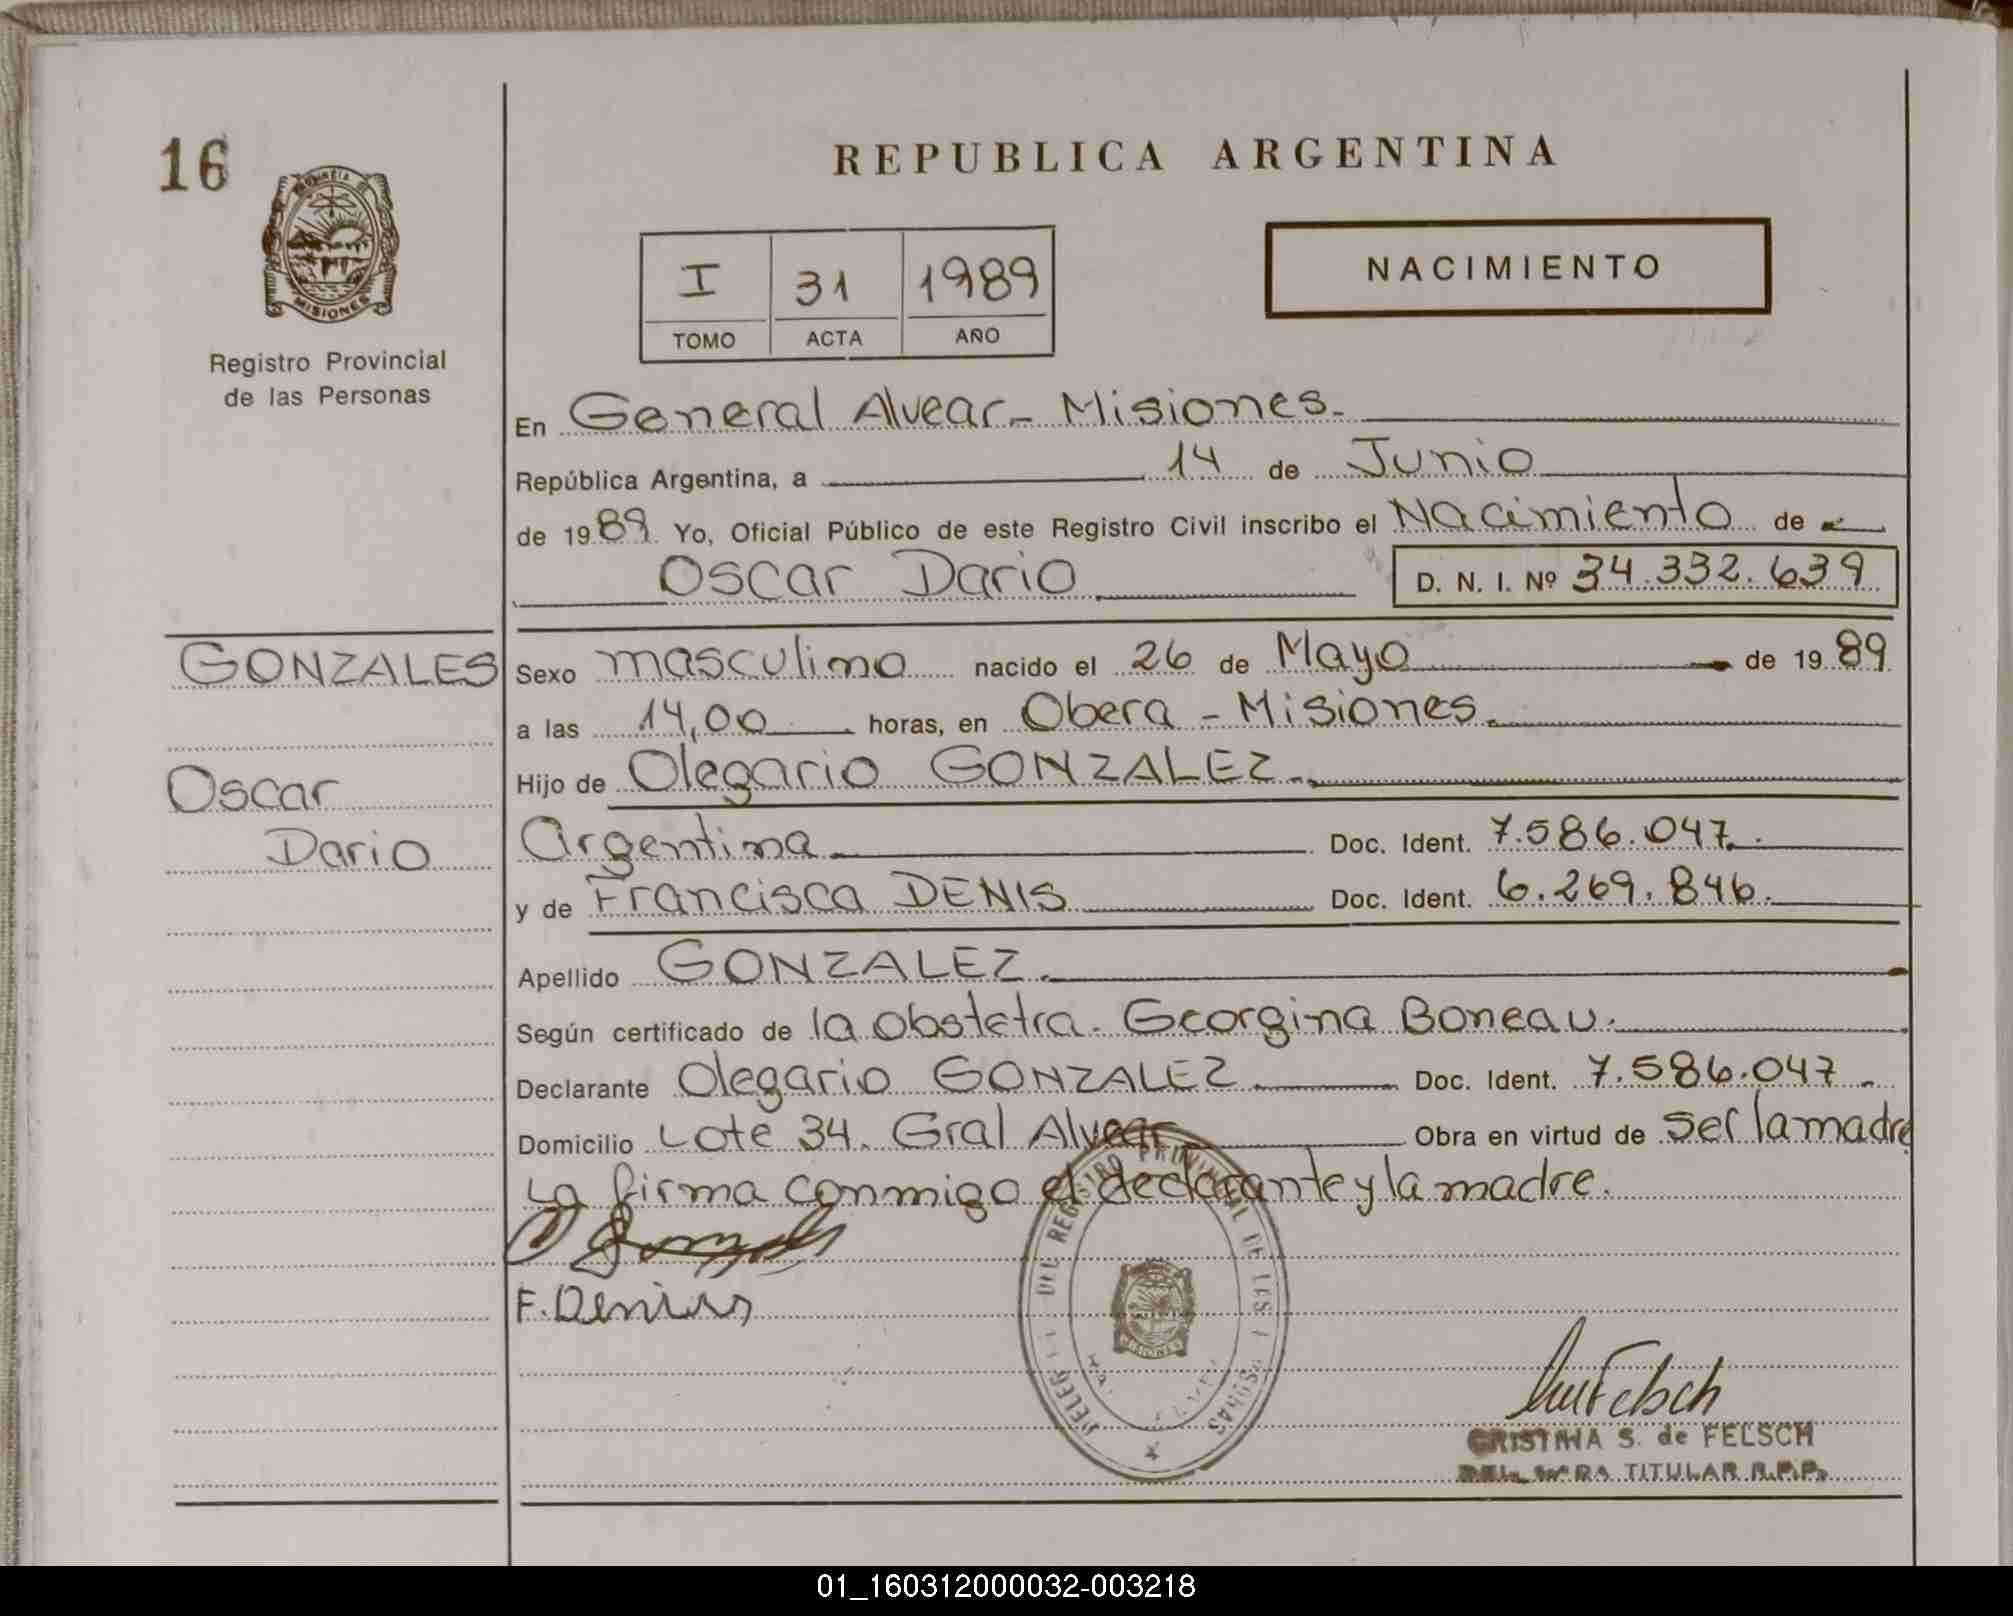 16
PROVINCIA DE
MISIONES
Registro Provincial
de las Personas
REPUBLICA ARGENTINA
I 31 1989
TOMO ACTA AÑO
NACIMIENTO
En General Alvear - Misiones.
República Argentina, a 14 de Junio
de 1989 Yo, Oficial Público de este Registro Civil inscribo el Nacimiento de
Oscar Dario D. N. I. Nº 34.332.639
GONZALES
Oscar
Dario
Sexo masculino nacido el 26 de Mayo de 1989
a las 14,00 horas, en Obera - Misiones.
Hijo de Olegario GONZALEZ.
Argentina Doc. Ident. 7.586.047.
y de Francisca DENIS Doc. Ident. 6.269.846.
Apellido GONZALEZ.
Según certificado de la obstetra. Georgina Boneau.
Declarante Olegario GONZALEZ Doc. Ident. 7.586.047.
Domicilio Lote 34. Gral Alvear Obra en virtud de ser la madre
La firma conmigo el declarante y la madre.
F. Denis
DEL REGISTRO PROVINCIAL DE LAS
MISIONES
Felsch
CRISTINA S. de FELSCH
TITULAR R.P.P.
01_160312000032-003218